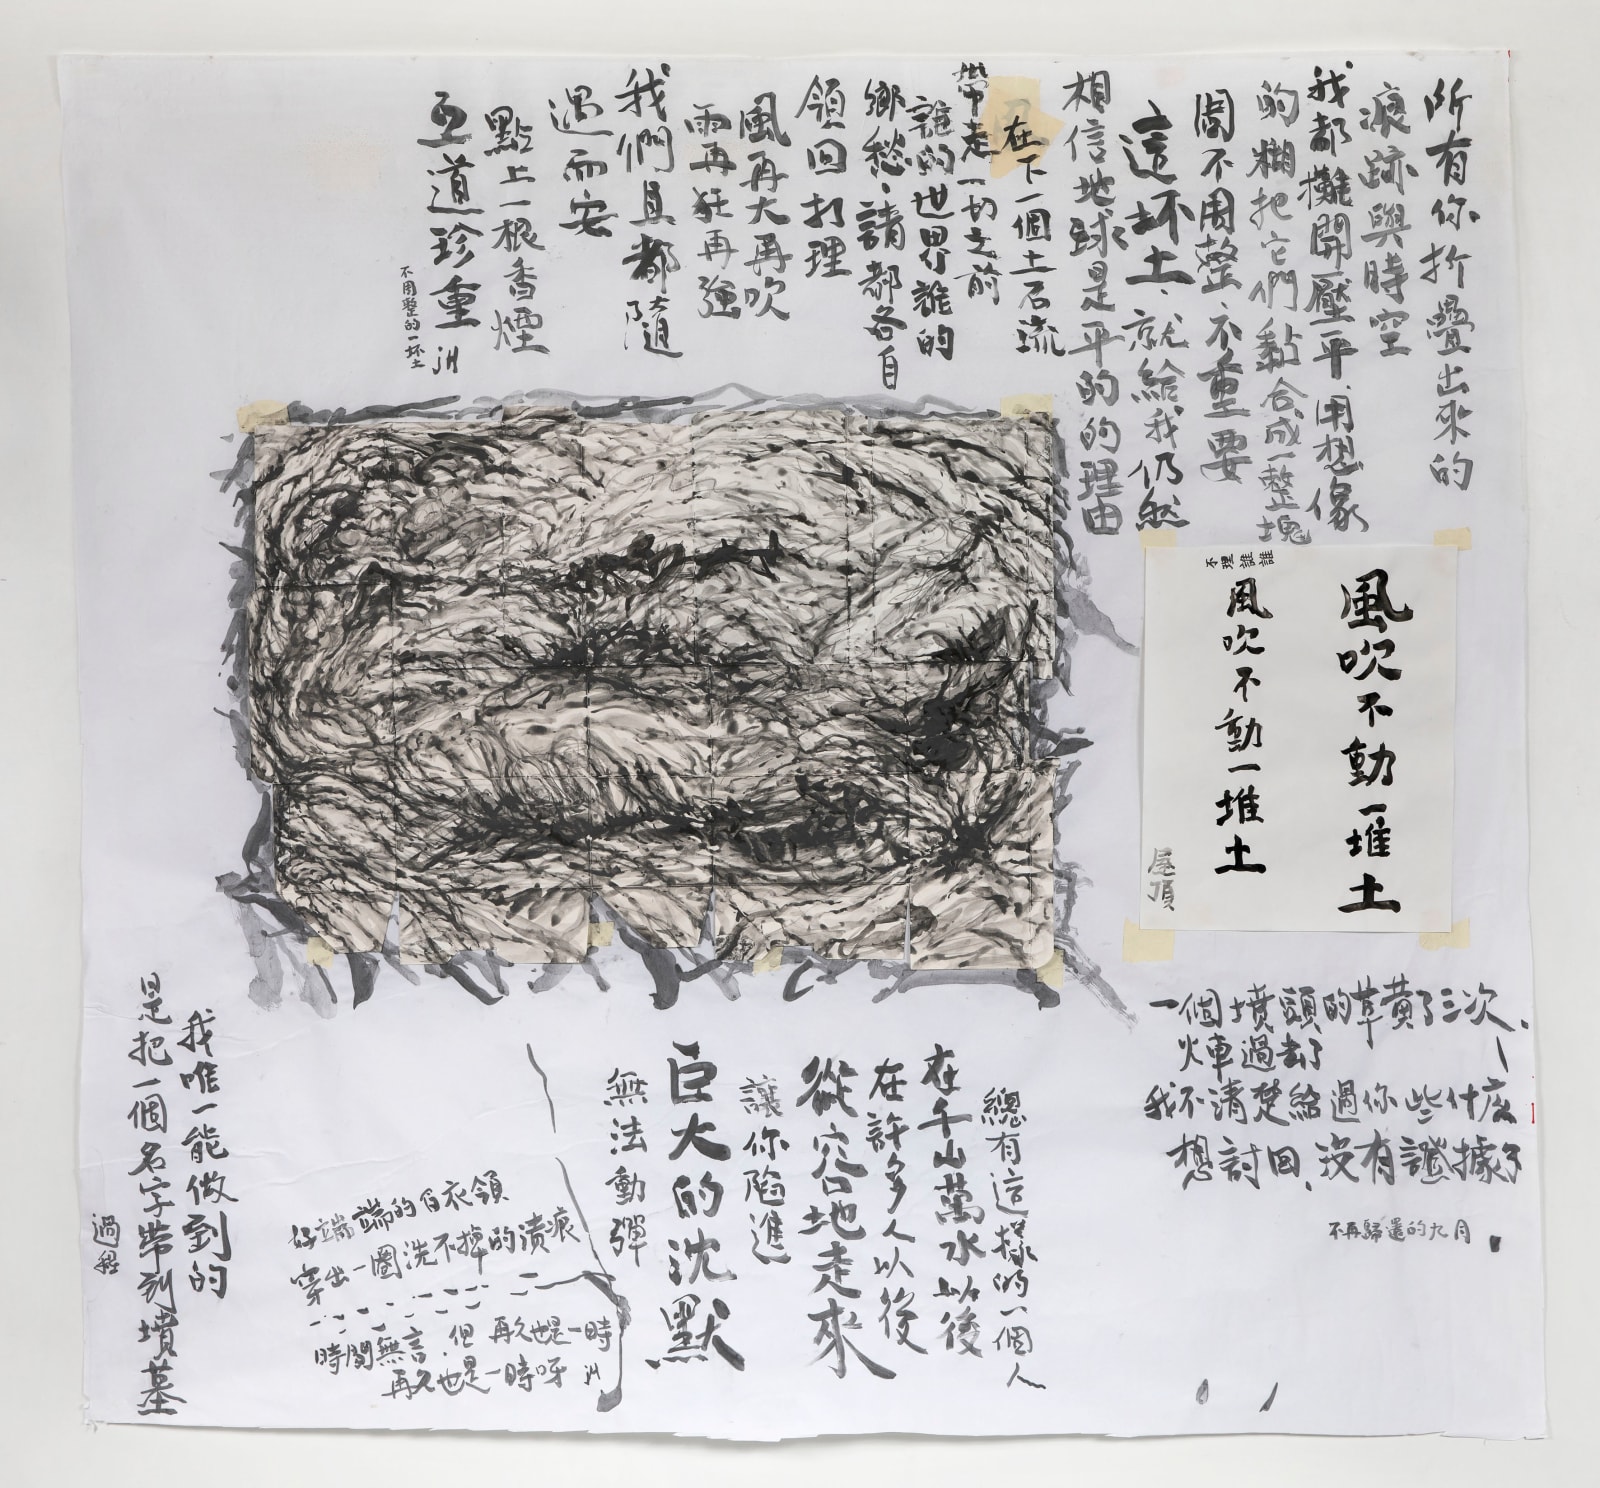 所有你折疊出來的
痕跡與時空
我都攤開壓平、用想像
的糊把它們黏合成一整塊
周不周整、不重要
這坏土、就給我仍然
相信地球是平的的理由
在下一個土石流
帶走一切之前
誰的世界誰的
鄉愁、請都各自
領回打理
風再大再吹
雨再狂再強
我們且都隨
遇而安
點上一根香煙
互道珍重
不周整的一坏土
風吹不動一堆土
不理誰誰
風吹不動一堆土
屋頂
一個墳頭的草黃了三次、
火車過去了
我不清楚給過你些什麼
想討回、沒有證據了
不再歸還的九月
總有這樣的一個人
在千山萬水以後
在許多人以後
從穴地走來
讓你陷進
巨大的沈默
無法動彈
好端端的白衣領
穿出一圈洗不掉的漬痕
時間無言、但再久也是一時
再久也是一時呀
我唯一能做到的
是把一個名字帶到墳墓
過程